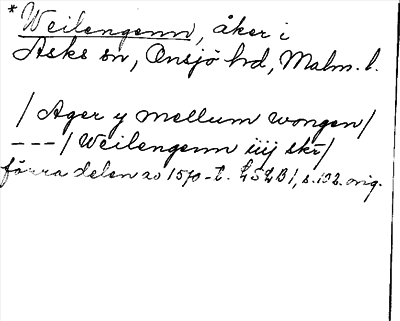 *Weilengenn, åker i
Asks sn, Onsjö hd, Malm. l.
/ Ager y mellum wongen /
--- / Weilengenn iiij skr /
förra delen av 1570-t. LSLB 1, s. 192. orig.